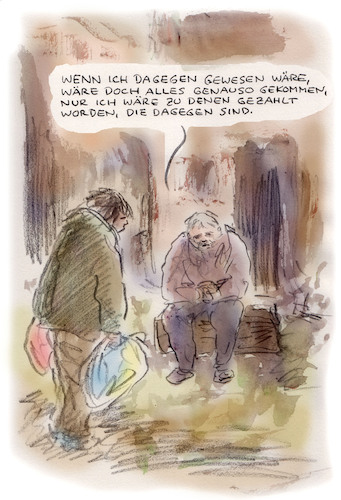 WENN ICH DAGEGEN GEWESEN WÄRE,
WÄRE DOCH ALLES GENAUSO GEKOMMEN,
NUR ICH WÄRE ZU DENEN GEZÄHLT
WORDEN, DIE DAGEGEN SIND.